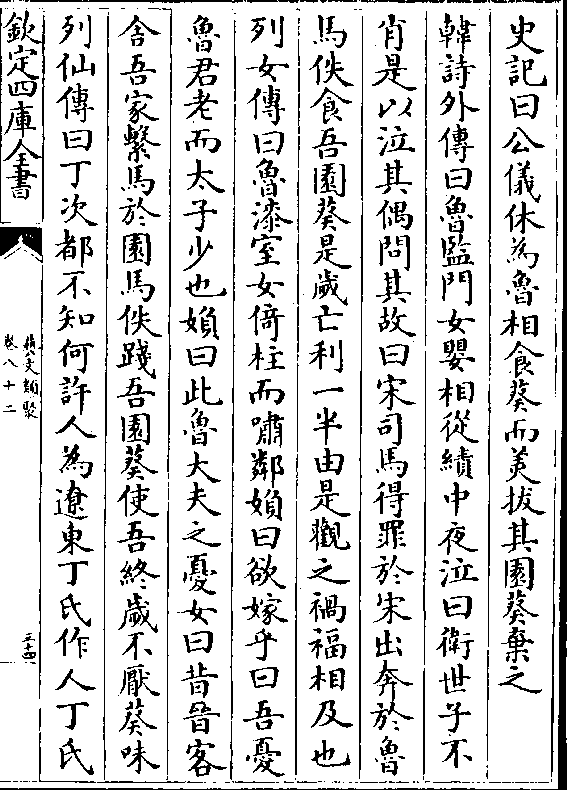 史記曰公儀休為魯相食葵而美拔其園葵棄之
韓詩外傳曰魯監門女嬰相從績中夜泣曰衛世子不
肖是以泣其偶問其故曰宋司馬得罪於宋出奔於魯
馬佚食吾園葵是歲亡利一半由是觀之禍福相及也
列女傳曰魯漆室女倚柱而嘯鄰媍曰欲嫁乎曰吾憂
魯君老而太子少也媍曰此魯大夫之憂女曰昔晉客
舍吾家繫馬於園馬佚踐吾園葵使吾終歲不厭葵味
列仙傳曰丁次都不知何許人為遼東丁氏作人丁氏
欽定四庫全書
藝文類聚
卷八十二
三十四